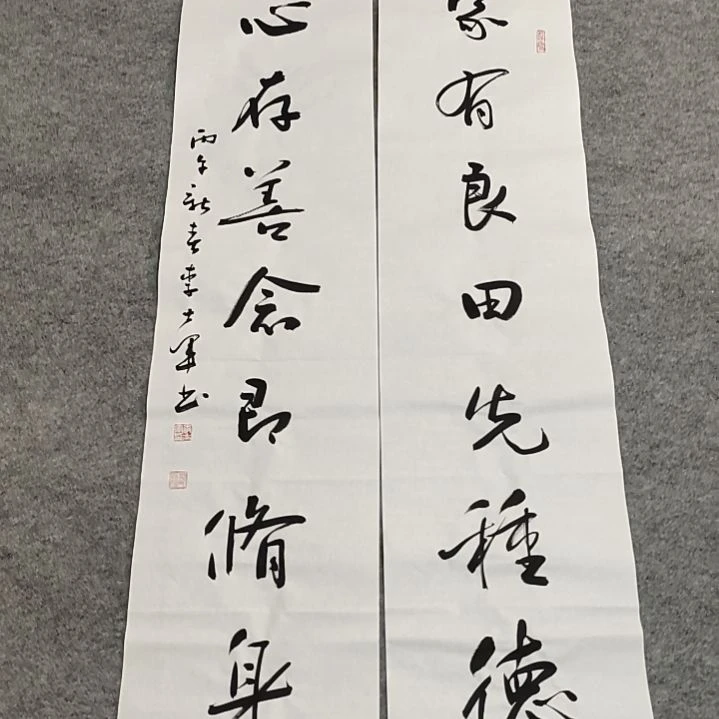 家有良田先種德
心存善念即脩身
丙午新春李士軍书